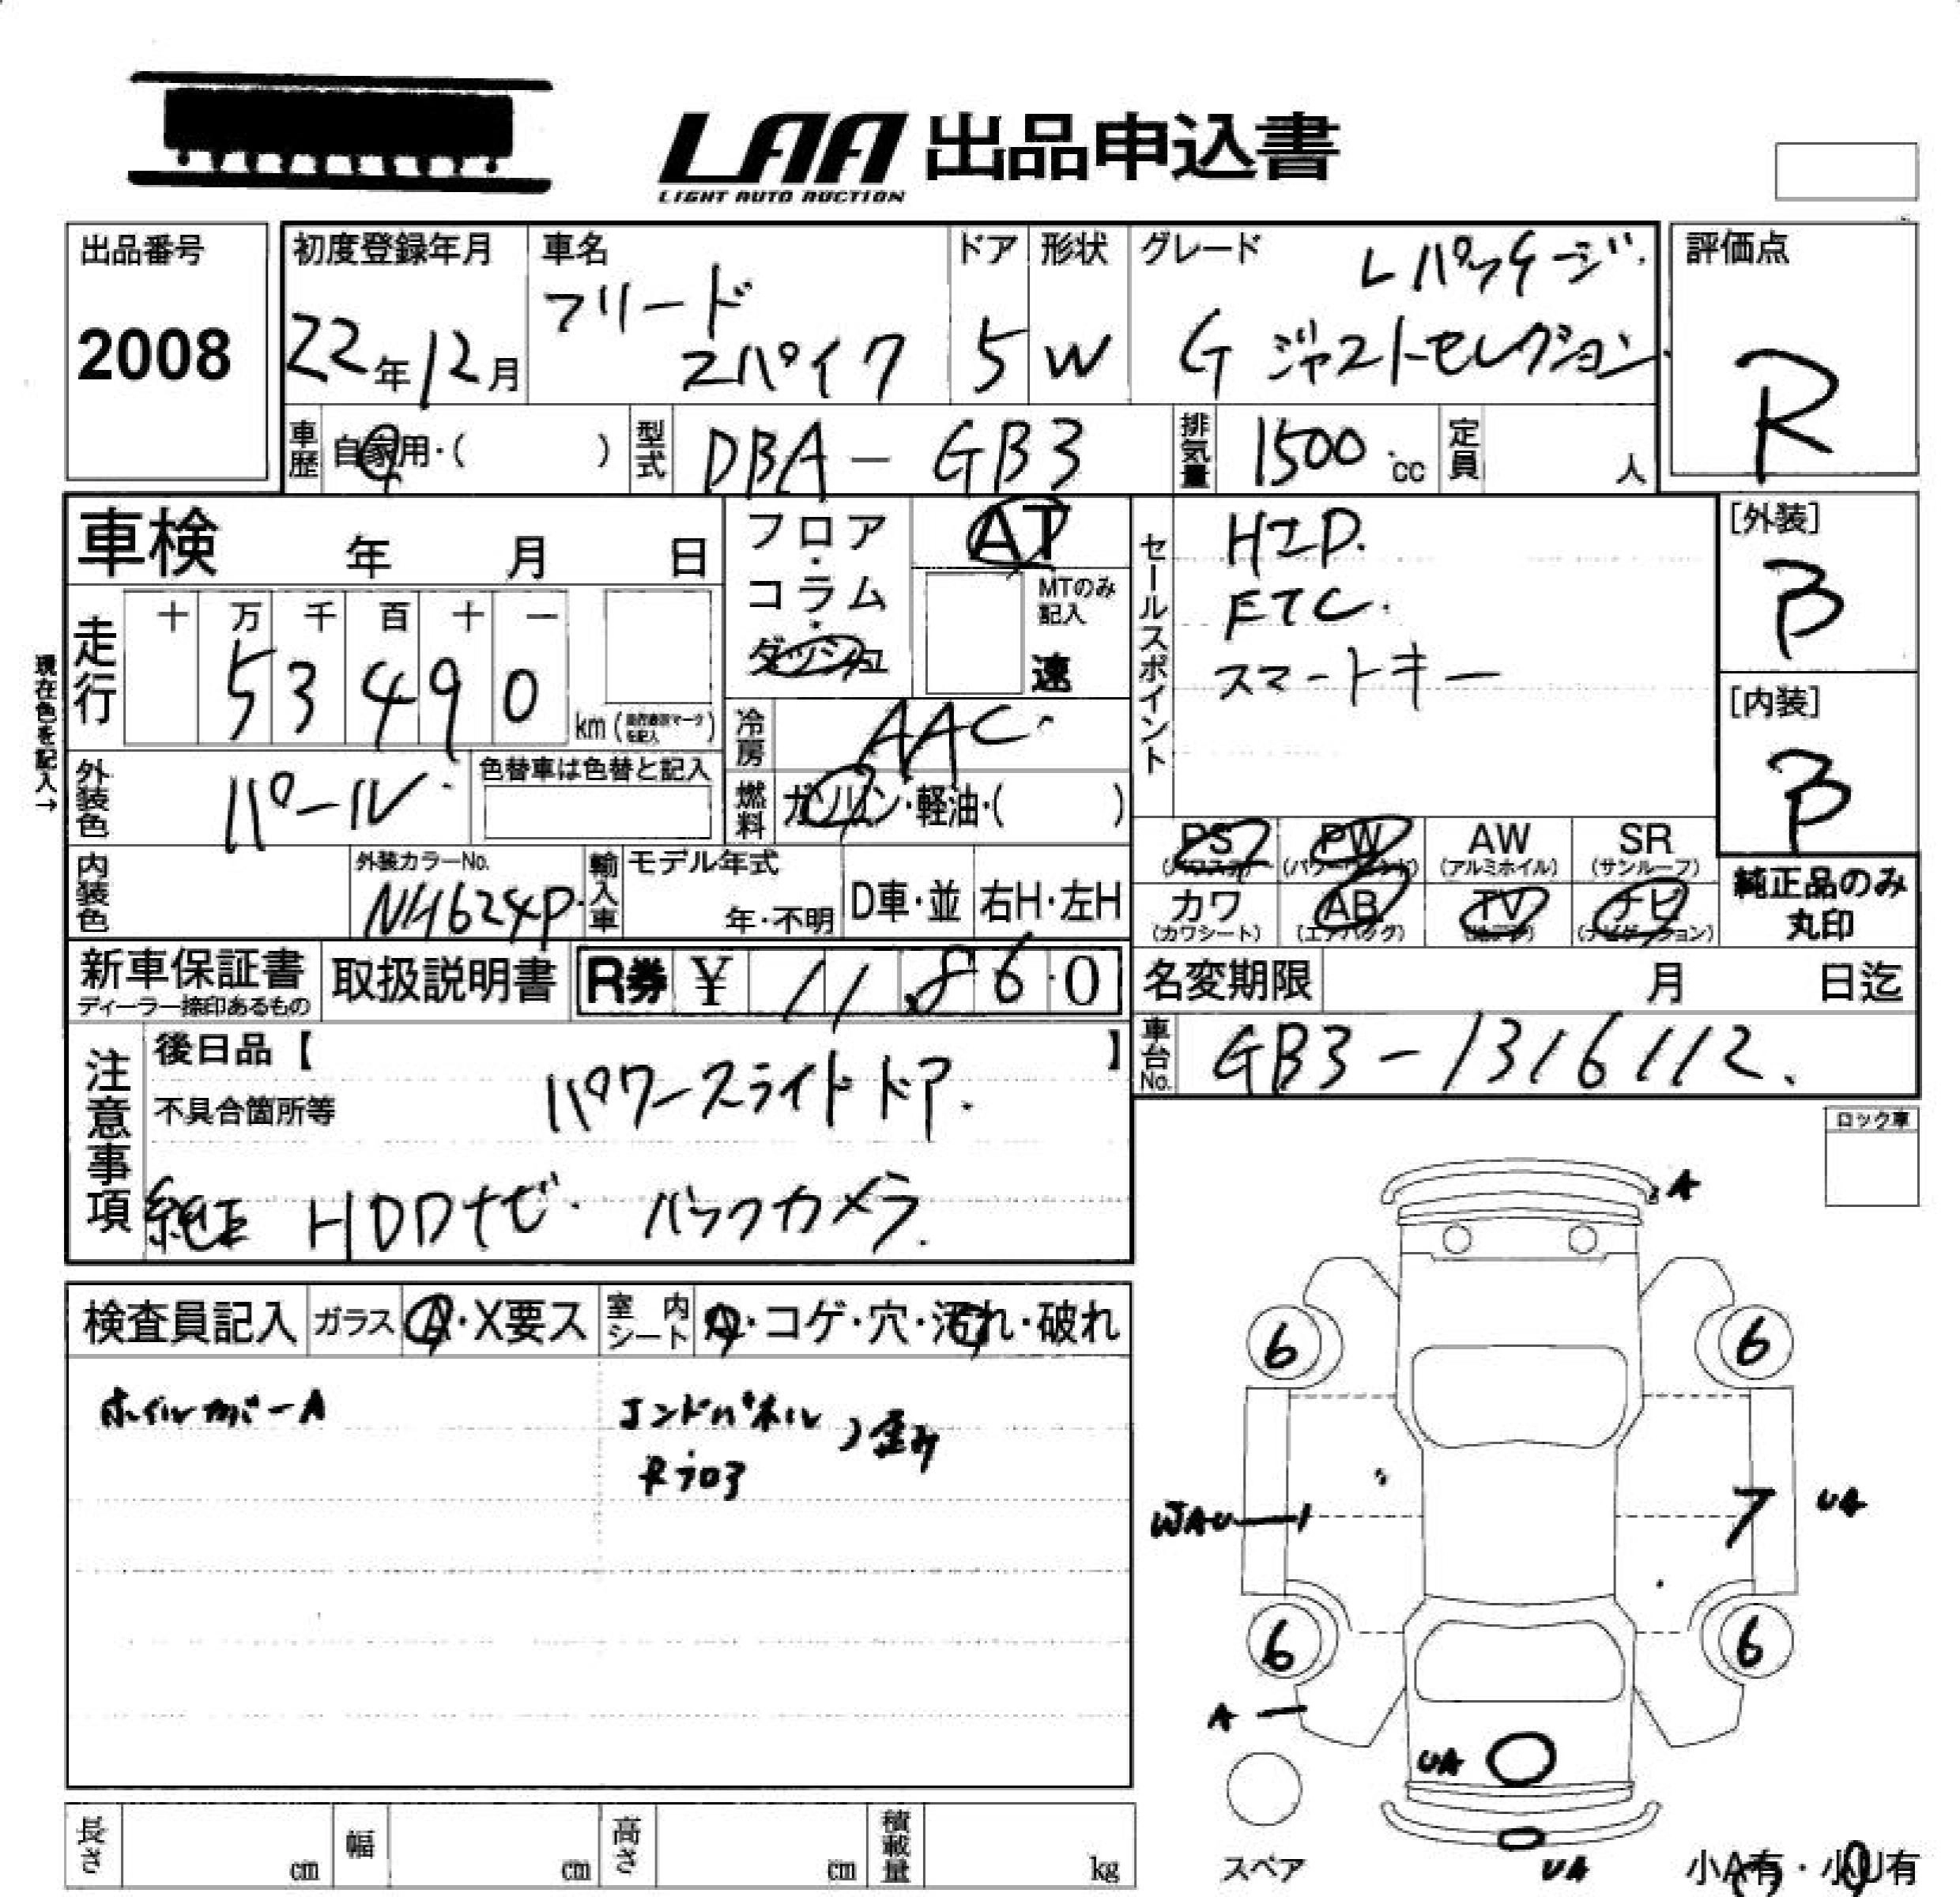 LAA 出品申込書
LIGHT AUTO AUCTION
出品番号
2008
初度登録年月
22年12月
車名
フリード
スパイク
ドア
5
形状
W
グレード
Lパッケージ
G ジャストセレクション
評価点
R
車歴
自家用・( )
型式
DBA-GB3
排気量
1500 cc
定員
人
車検 年 月 日
フロア・コラム・ダッシュ
AT
MTのみ記入
速
セールスポイント
HID.
ETC.
スマートキー
[外装]
B
[内装]
B
現在色を記入→
走行
十 万 千 百 十 一
5 3 4 9 0
km
冷房
AAC
燃料
ガソリン・軽油・( )
外装色
パール
色替車は色替と記入
PS
PW
AW
(アルミホイル)
SR
(サンルーフ)
カワ
(カワシート)
AB
(エアバッグ)
TV
ナビ
(ナビゲーション)
純正品のみ
丸印
内装色
外装カラーNo.
NH624P
輸入車
モデル年式
年・不明
D車・並
右H・左H
新車保証書
ディーラー捺印あるもの
取扱説明書
R券 ¥ 11,860
名変期限 月 日迄
車台No.
GB3-1316112.
注意事項
後日品【 】
不具合箇所等
パワースライドドア.
純正 HDDナビ. バックカメラ.
ロック車
検査員記入
ガラス
A・X要ス
室内シート
A・コゲ・穴・汚れ・破れ
ホイルカバーA
エンドパネル
Rフロア
歪み
A
6
6
WAU
7
UA
6
6
A
UA
UA
スペア
小A有・小U有
長さ cm
幅 cm
高さ cm
積載量 kg